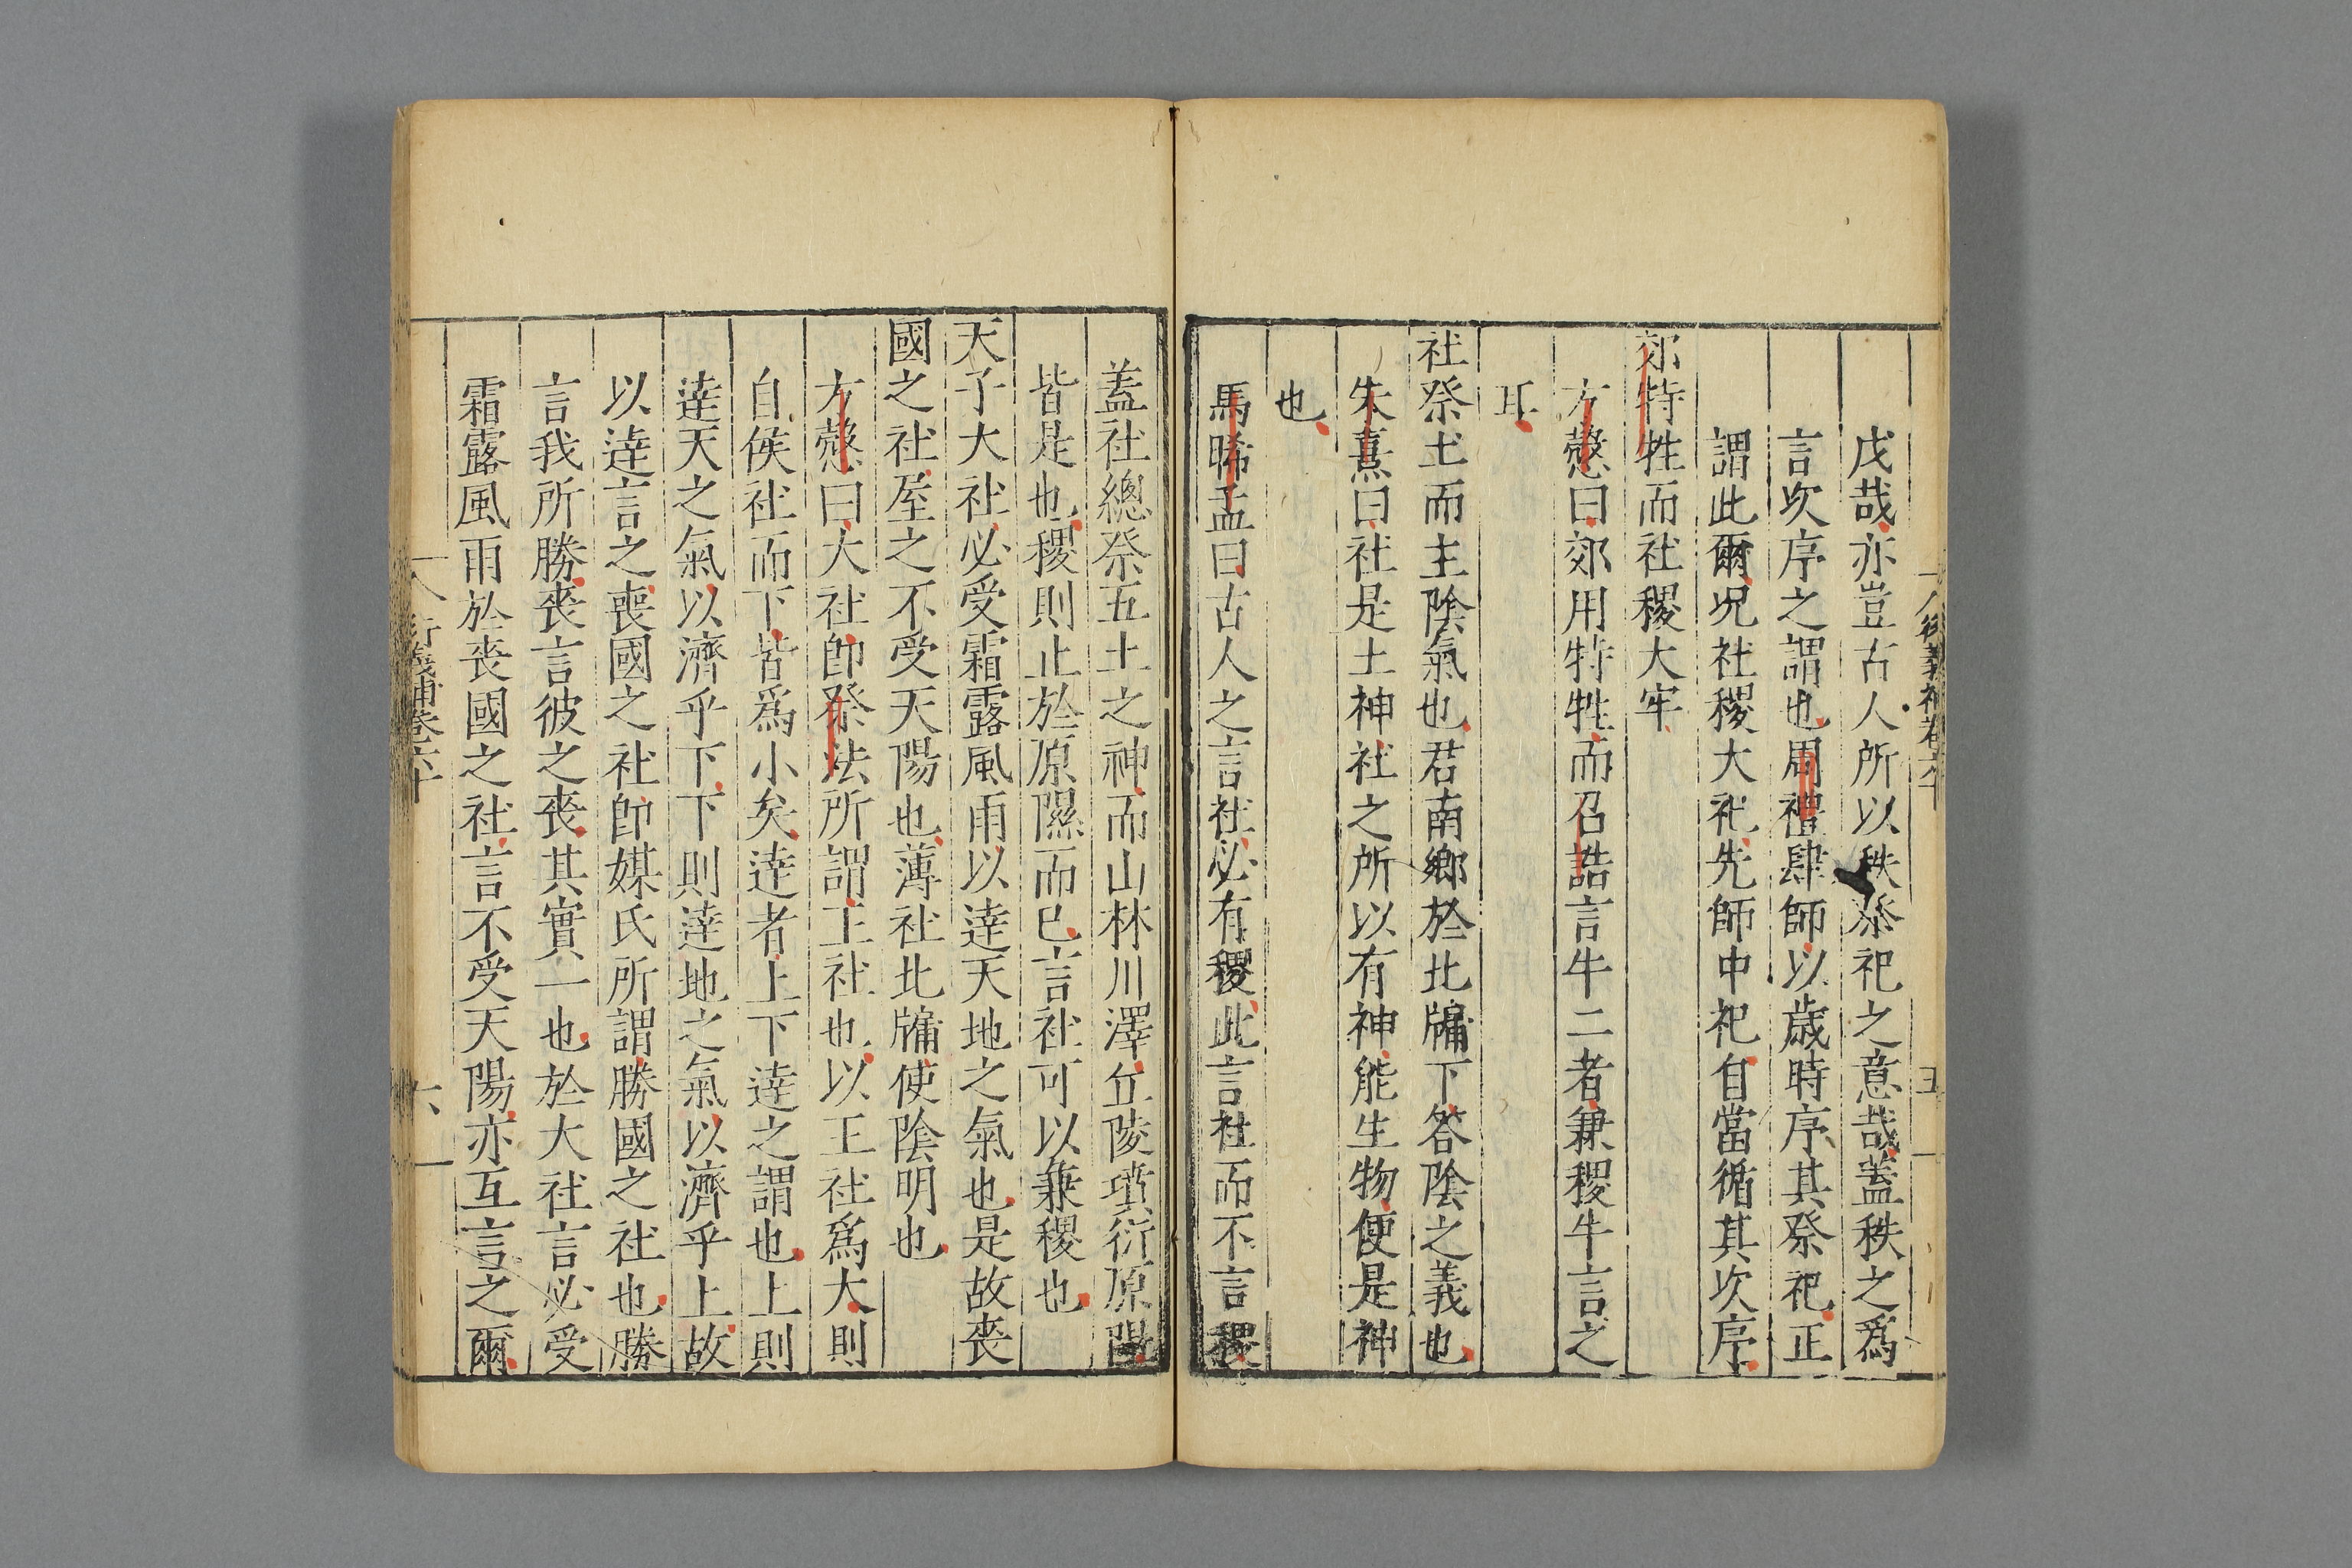 戊哉亦豈古人所以秩祭祀之意哉蓋秩之爲
言次序之謂也周禮肆師以歲時序其祭祀正
謂此爾况社稷大祀先師中祀自當循其次序
郊特牲而社稷大牢
方慤曰郊用特牲而召誥言牛二者兼稷牛言之
耳
社祭土而主陰氣也君南鄉於北牖下答陰之義也
朱熹曰社是土神社之所以有神能生物便是神
也
馬晞孟曰古人之言社必有稷此言社而不言稷
蓋社總祭五土之神而山林川澤丘陵墳衍原隰
皆是也稷則止於原隰而已言社可以兼稷也
天子大社必受霜露風雨以達天地之氣也是故喪
國之社屋之不受天陽也薄社北牖使陰明也
方慤曰大社卽祭法所謂王社也以王社爲大則
自侯社而下皆爲小矣達者上下達之謂也上則
達天之氣以濟乎下下則達地之氣以濟乎上故
以達言之喪國之社卽媒氏所謂勝國之社也勝
言我所勝喪言彼之喪其實一也於大社言必受
霜露風雨於喪國之社言不受天陽亦互言之爾
衍義補卷六十
六